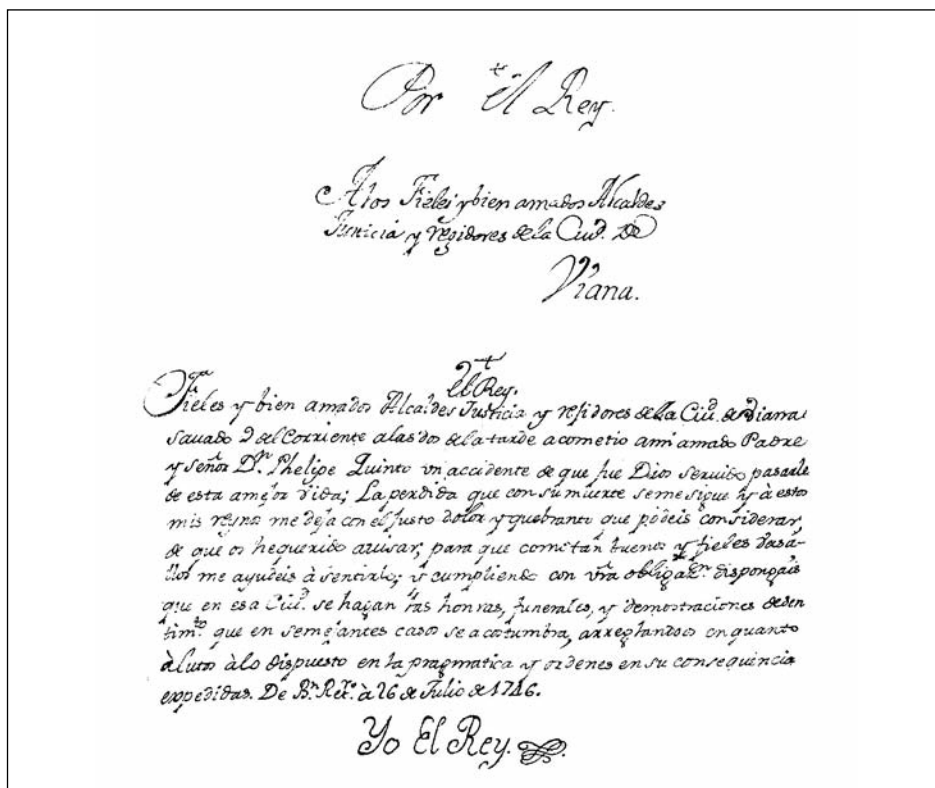 Por El Rey.
A los Fieles y bien amados Alcaldes
Justicia y rexidores de la Ciud. De
Viana.
El Rey.
Fieles y bien amados Alcaldes Justicia y rexidores de la Ciud. de Viana
Savado 9 del Corriente a las dos de la tarde acometio a mi amado Padre
y señor Dn. Phelipe Quinto un accidente de que fue Dios servido pasarle
de esta a mejor vida; La perdida que con su muerte se me sigue y à estos
mis reynos me deja con el justo dolor y quebranto que podeis considerar,
de que os he querido avisar, para que como tan buenos y fieles vasa-
llos me ayudeis à sentirlo; y cumpliendo con vra obligazn. dispongais
que en esa Ciud. se hagan las honras, funerales, y demostraciones de sen
timto. que en semejantes casos se acostumbra, arreglandoos en quanto
à lutos à lo dispuesto en la pragmatica y ordenes en su consequencia
expedidas. De Bn. Reto. à 26 de Julio de 1746.
Yo El Rey.